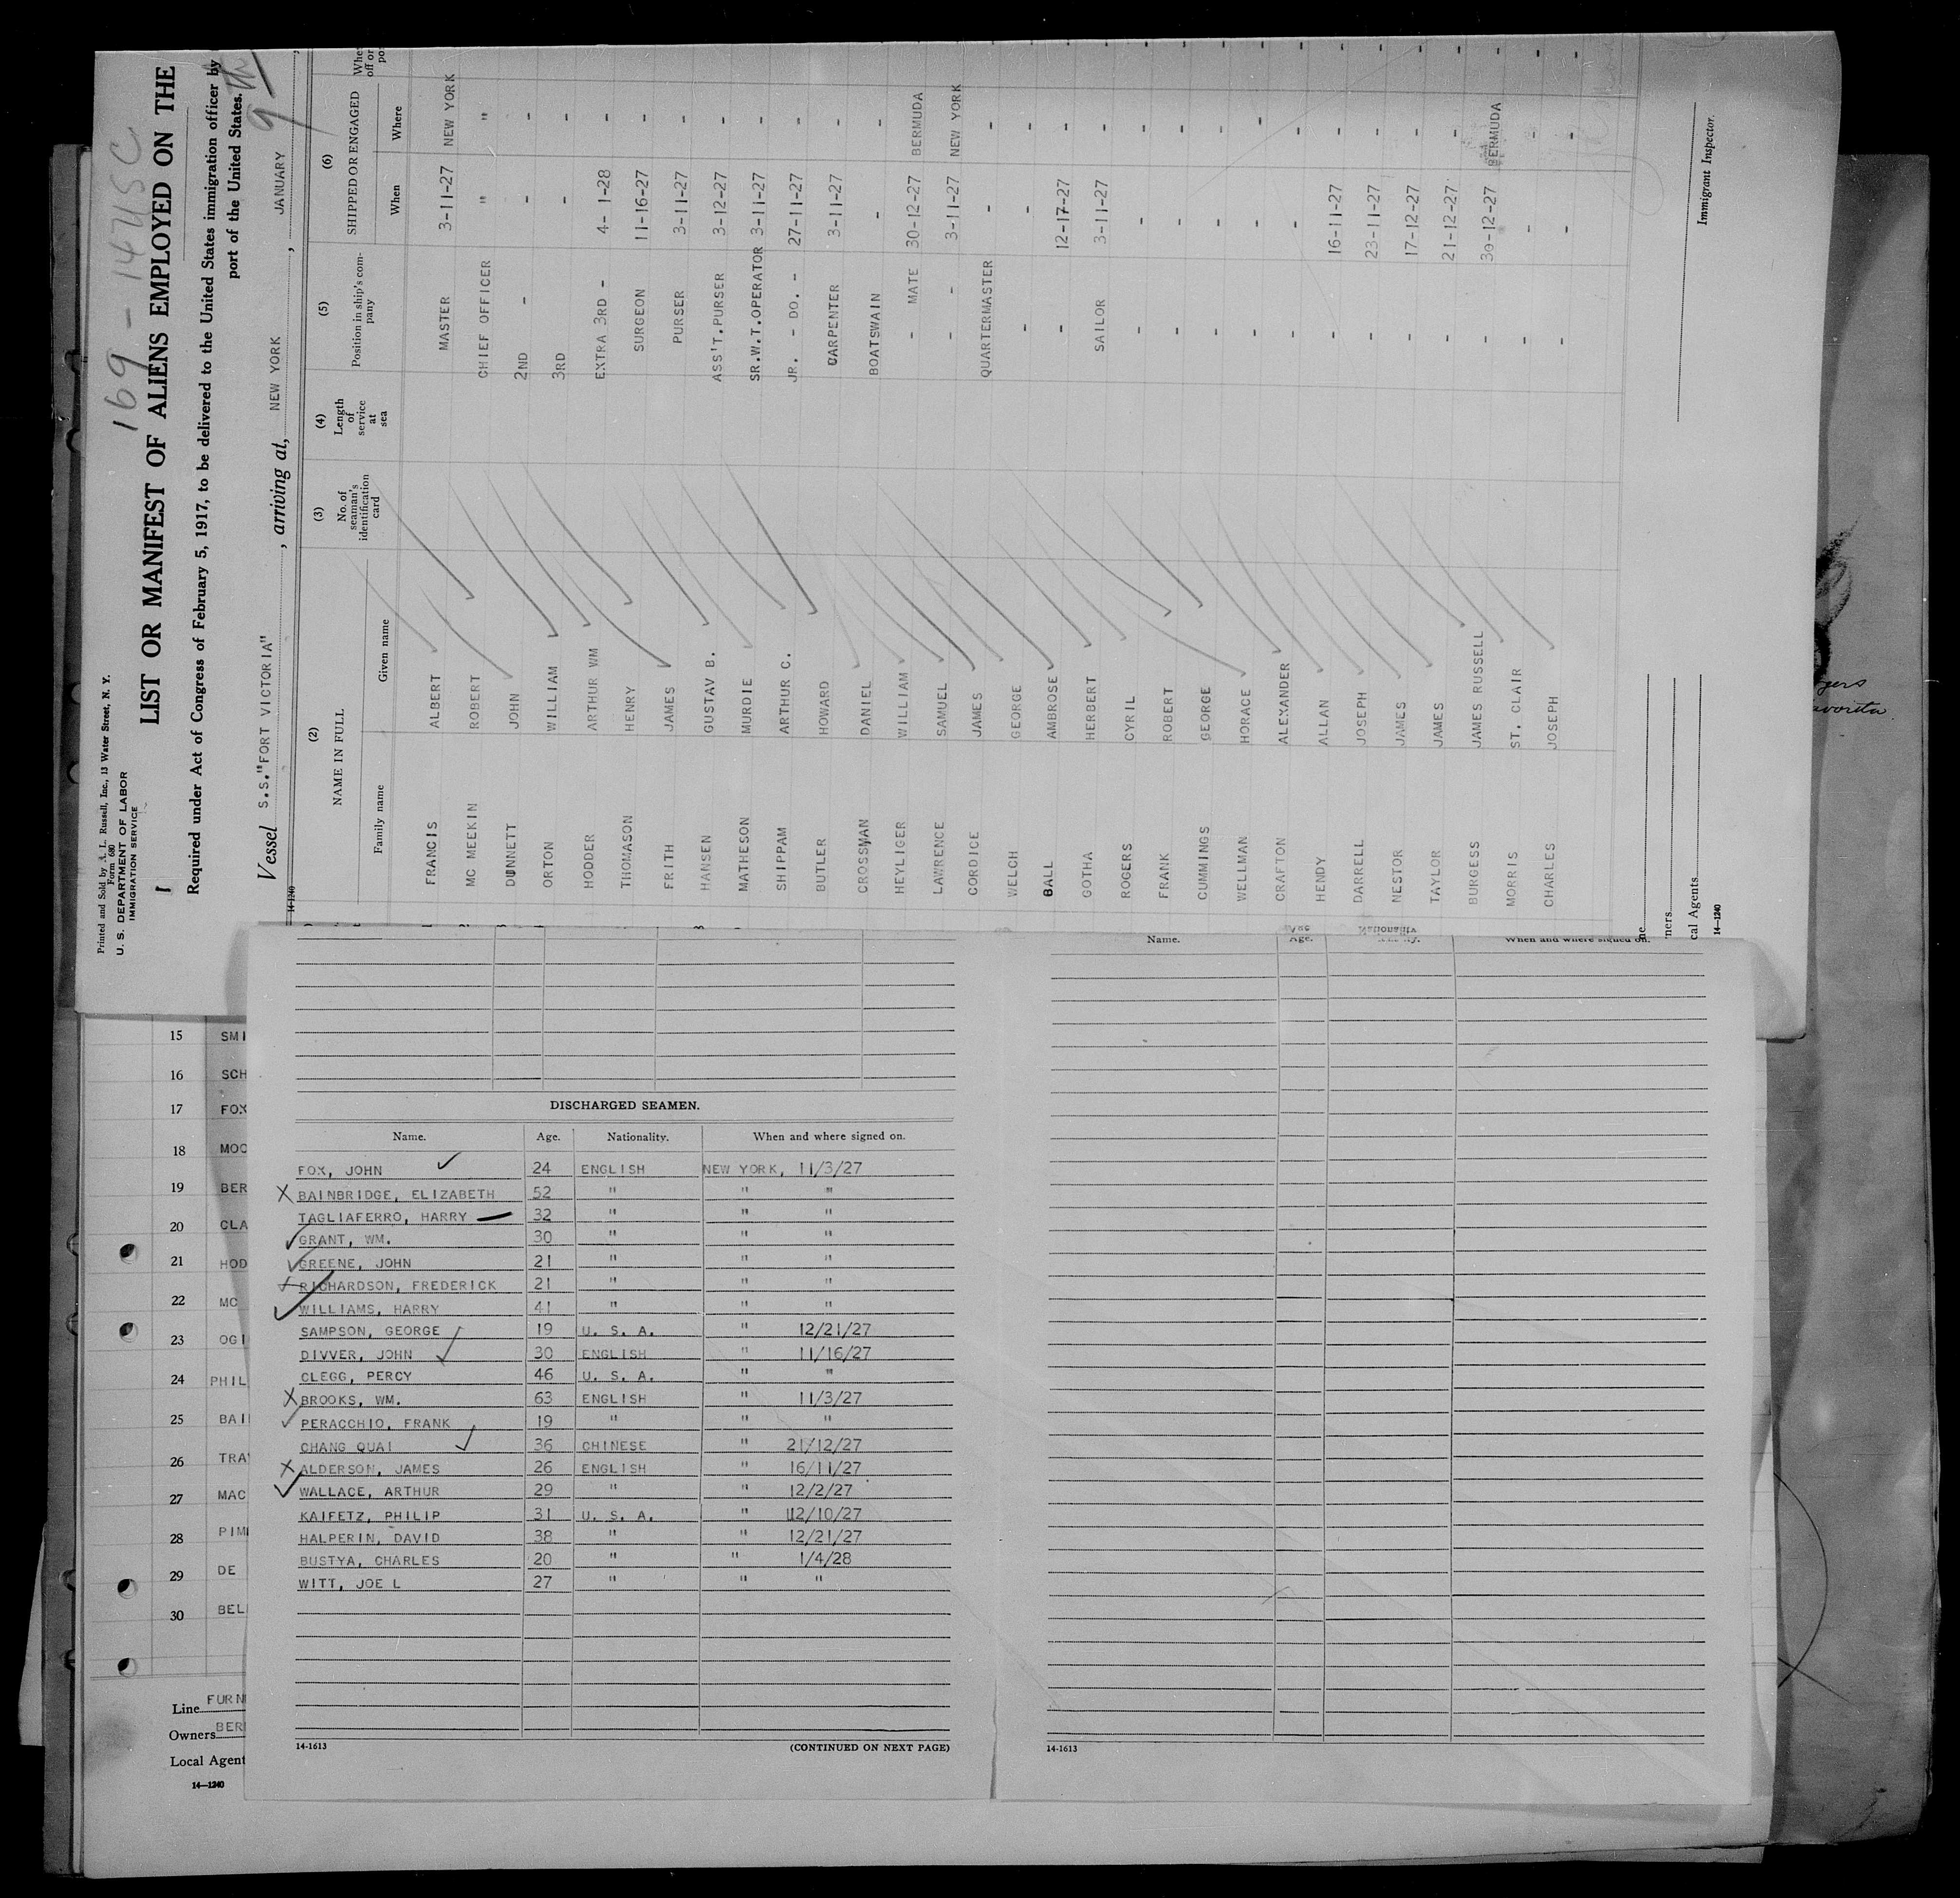 169-147 USC
Printed and Sold by A. L. Russell, Inc., 13 Water Street, N. Y.
Form 680
U. S. DEPARTMENT OF LABOR
IMMIGRATION SERVICE
LIST OR MANIFEST OF ALIENS EMPLOYED ON THE
Required under Act of Congress of February 5, 1917, to be delivered to the United States immigration officer by
port of the United States.
Vessel S.S."FORT VICTORIA", arriving at, NEW YORK, JANUARY 9th
14-1240
(2) (3) (4) (5) (6)
NAME IN FULL No. of seaman's identification card Length of service at sea Position in ship's company SHIPPED OR ENGAGED
Family name Given name When Where
FRANCIS ALBERT MASTER 3-11-27 NEW YORK
MC MEEKIN ROBERT CHIEF OFFICER " "
DUNNETT JOHN 2ND - - -
ORTON WILLIAM 3RD - -
HODDER ARTHUR WM EXTRA 3RD - 4- 1-28 -
THOMASON HENRY SURGEON 11-16-27 -
FRITH JAMES PURSER 3-11-27 -
HANSEN GUSTAV B. ASS'T.PURSER 3-12-27 -
MATHESON MURDIE SR.W.T.OPERATOR 3-11-27 -
SHIPPAM ARTHUR C. JR. - DO. - 27-11-27 -
BUTLER HOWARD CARPENTER 3-11-27 -
CROSSMAN DANIEL BOATSWAIN - -
HEYLIGER WILLIAM - MATE 30-12-27 BERMUDA
LAWRENCE SAMUEL - - 3-11-27 NEW YORK
CORDICE JAMES QUARTERMASTER - -
WELCH GEORGE - - -
BALL AMBROSE - 12-17-27 -
GOTHA HERBERT SAILOR 3-11-27 -
ROGERS CYRIL - - -
FRANK ROBERT - - -
CUMMINGS GEORGE - - -
WELLMAN HORACE - - -
CRAFTON ALEXANDER - - -
HENDY ALLAN - 16-11-27 -
DARRELL JOSEPH - 23-11-27 -
NESTOR JAMES - 17-12-27 -
TAYLOR JAMES - 21-12-27 -
BURGESS JAMES RUSSELL - 30-12-27 BERMUDA
MORRIS ST. CLAIR - - -
CHARLES JOSEPH - - -
Immigrant Inspector.
cal Agents
14—1240
15 SMI
16 SCH
17 FOX
18 MOO
19 BER
20 CLA
21 HOD
22 MC
23 OGI
24 PHIL
25 BAI
26 TRA
27 MAC
28 PIM
29 DE
30 BEL
Line FURN
Owners BER
Local Agent
14—1240
DISCHARGED SEAMEN.
Name. Age. Nationality. When and where signed on.
FOX, JOHN 24 ENGLISH NEW YORK, 11/3/27
BAINBRIDGE, ELIZABETH 52 " " "
TAGLIAFERRO, HARRY 32 " " "
GRANT, WM. 30 " " "
GREENE, JOHN 21 " " "
RICHARDSON, FREDERICK 21 " " "
WILLIAMS, HARRY 41 " " "
SAMPSON, GEORGE 19 U. S. A. " 12/21/27
DIVVER, JOHN 30 ENGLISH " 11/16/27
CLEGG, PERCY 46 U. S. A. " "
BROOKS, WM. 63 ENGLISH " 11/3/27
PERACCHIO, FRANK 19 " " "
CHANG QUAI 36 CHINESE " 21/12/27
ALDERSON, JAMES 26 ENGLISH " 16/11/27
WALLACE, ARTHUR 29 " " 12/2/27
KAIFETZ, PHILIP 31 U. S. A. " 12/10/27
HALPERIN, DAVID 38 " " 12/21/27
BUSTYA, CHARLES 20 " " 1/4/28
WITT, JOE L 27 " " "
14-1613 (CONTINUED ON NEXT PAGE)
Name. Age. Nationality. When and where signed on.
14-1613